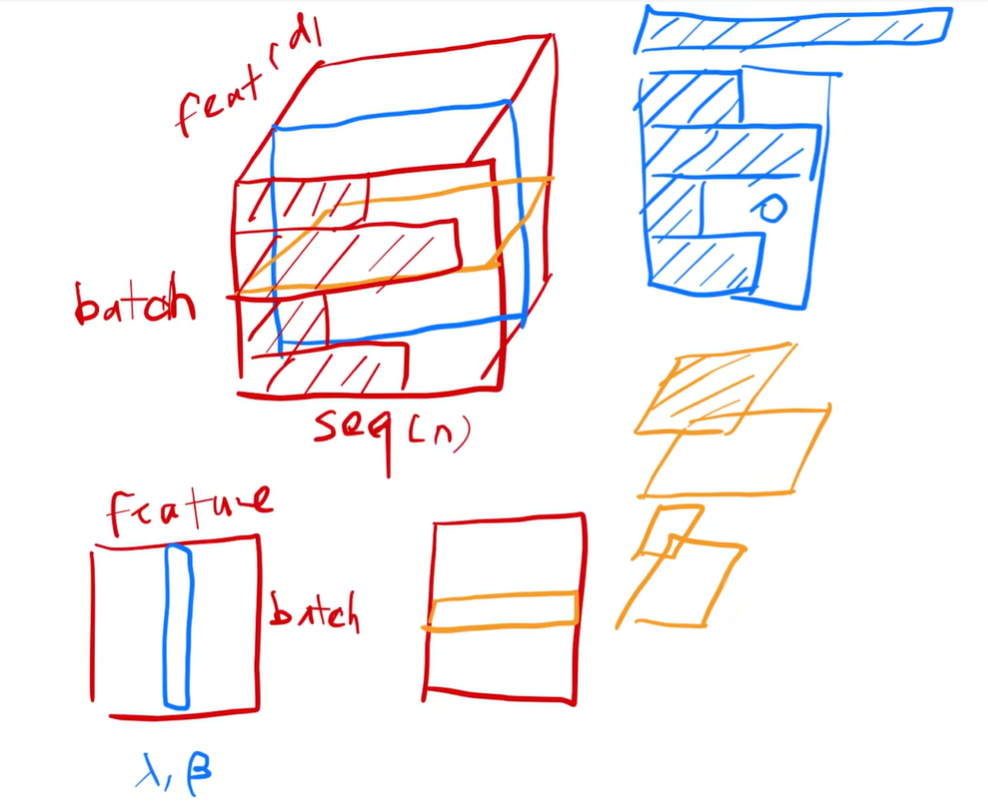 feat(d)
batch
seq(n)
feature
batch
λ, β
0